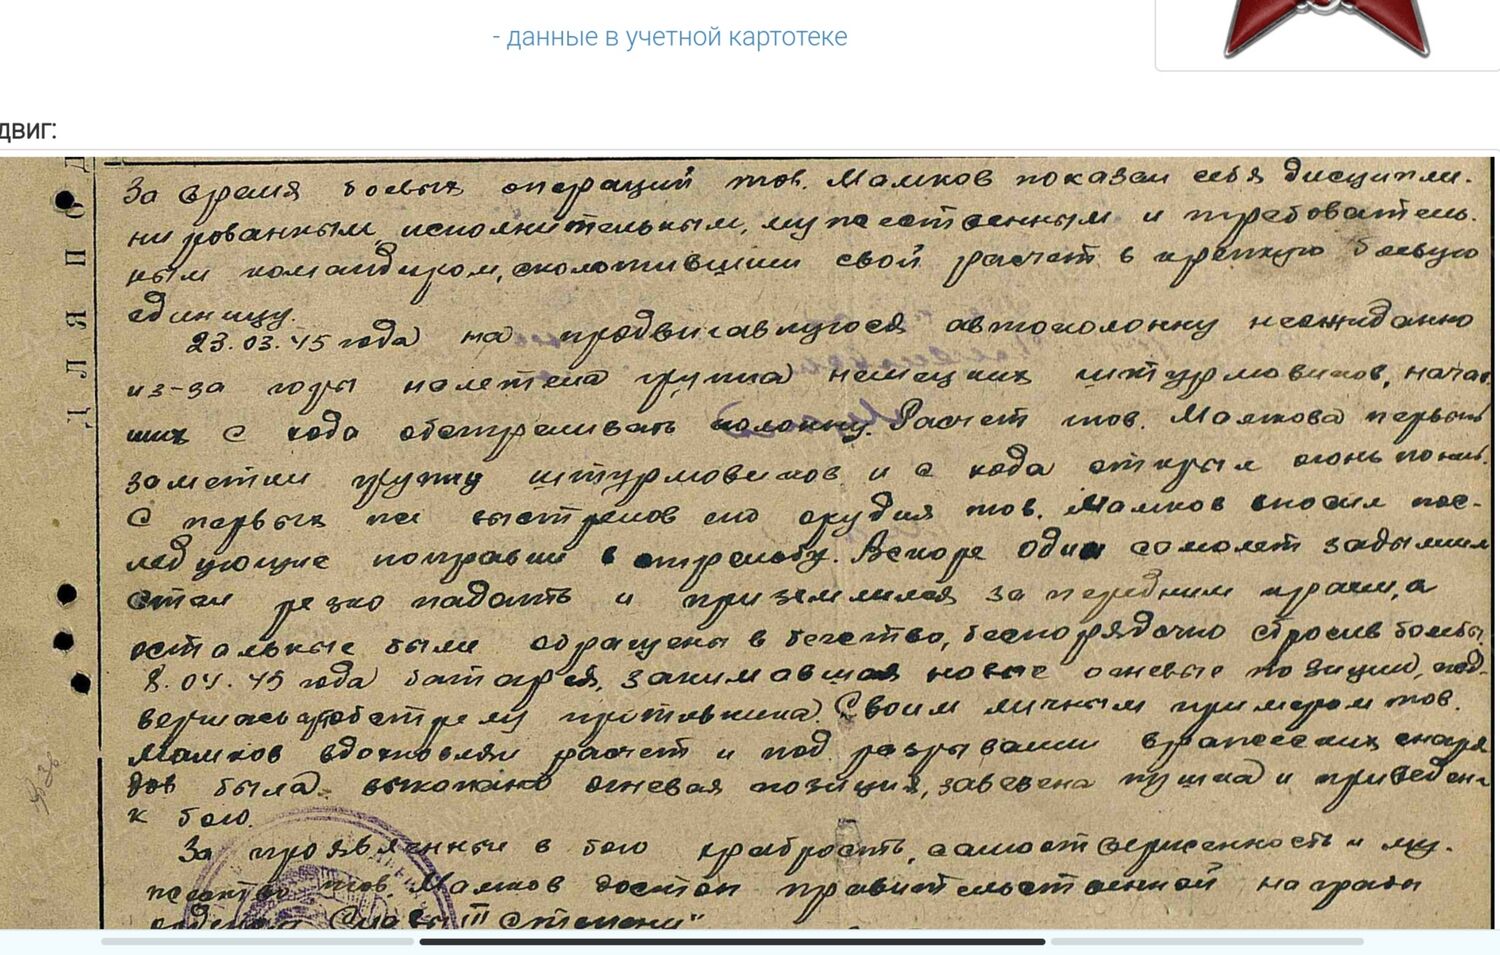 - данные в учетной картотеке
двиг:
За время боевых операций тов. Мамков показал себя дисципли-
нированным, исполнительным, мужественным и требователь-
ным командиром, сколотившим свой расчет в крепкую боевую
единицу.
23.03.45 года на продвигавшуюся автоколонну неожиданно
из-за горы налетела группа немецких штурмовиков, начав
ших с хода обстреливать колонну. Расчет тов. Мамкова первым
заметил группу штурмовиков и с хода открыл огонь по ним.
С первых же выстрелов его орудия тов. Мамков вносил пос-
ледующие поправки в стрельбу. Вскоре один самолет задымил
стал резко падать и приземлился за передним краем, а
остальные были обращены в бегство, беспорядочно сбросив бомбы.
8.04.45 года батарея, занимавшая новые огневые позиции, под-
верглась обстрелу противника. Своим личным примером тов.
Мамков вдохновлял расчет и под разрывами вражеских снаря
дов была выкопана огневая позиция, заведена пушка и приведена
к бою.
За проявленные в бою храбрость, самоотверженность и му-
жество тов. Мамков достоин правительственной награды
ордена Славы III степени"
ДЛЯ ПОД